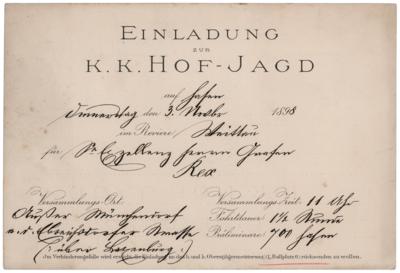 EINLADUNG
ZUR
K. K. HOF-JAGD
auf Hasen
Donnerstag den 3. Novbr 1898
im Reviere
für Sr Exzellenz Herrn Grafen
Rex
Versammlungs-Ort: Versammlungs-Zeit: 11 Uhr
Außer Münchendorf Fahrtdauer 1½ Stunde
a. d. Ebreichsdorfer Strasse Präliminare 700 Hasen
(: über Laxenburg :)
Im Verhinderungsfalle wird ersucht, die Einladung an das k. und k. Oberstjägermeisteramt (I., Ballplatz 6) rücksenden zu wollen.